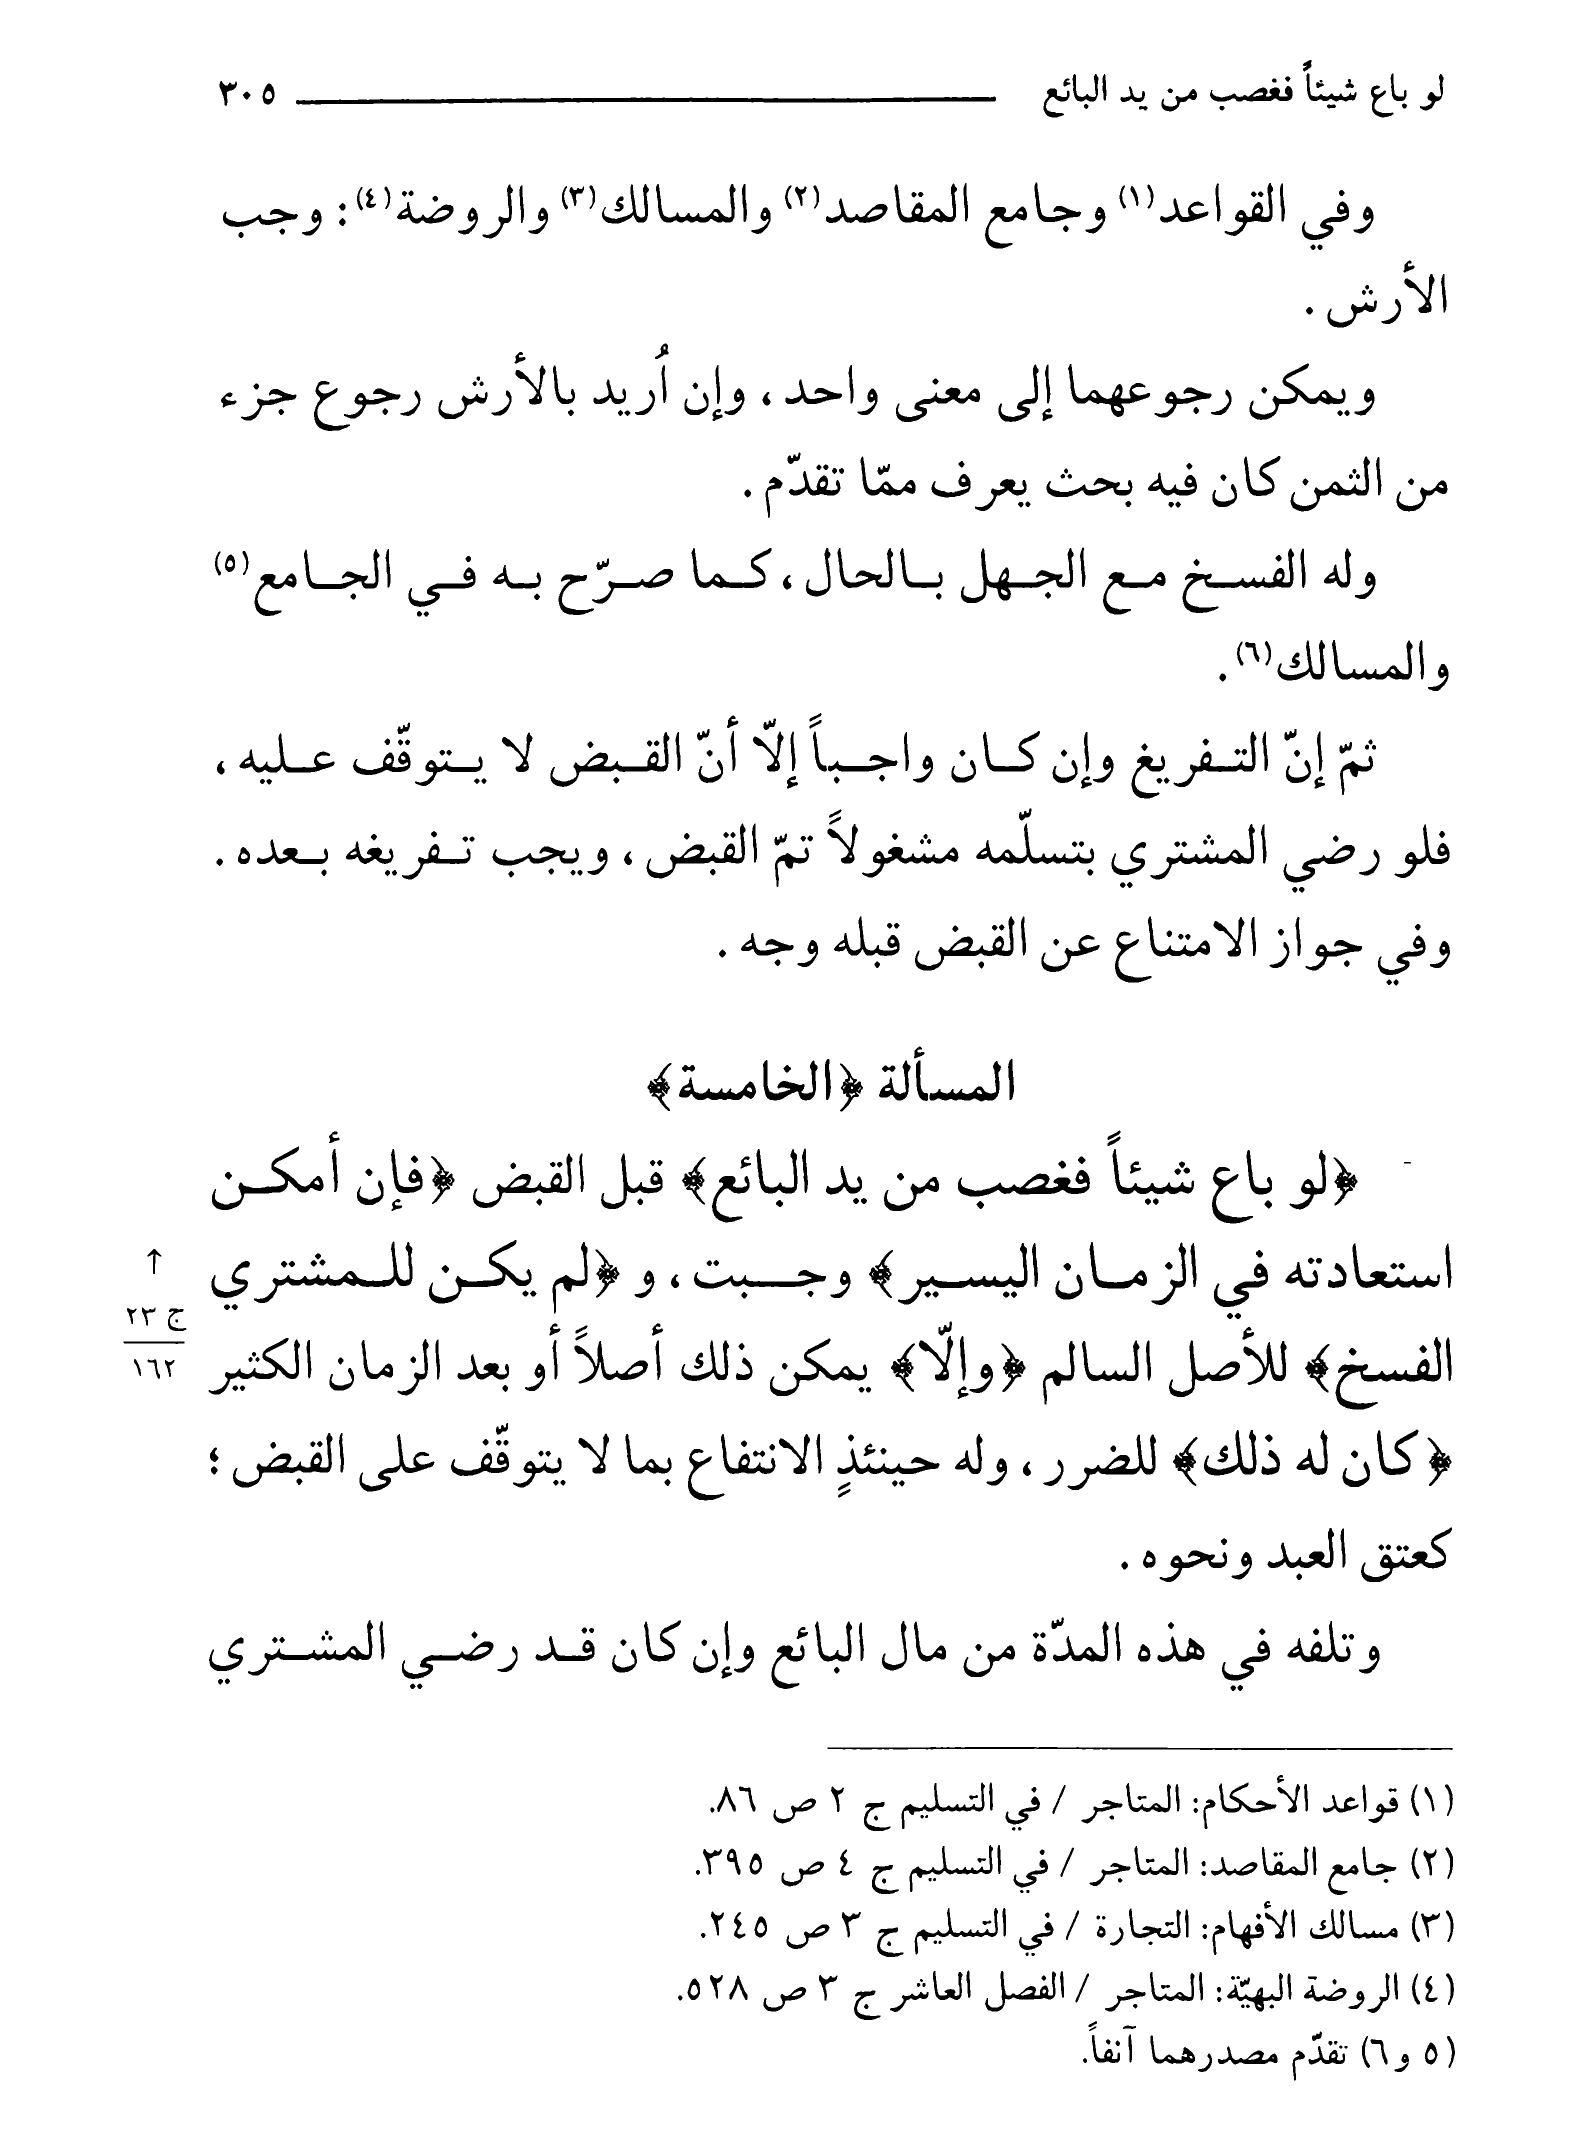 لو باع شيئاً فغصب من يد البائع ٣٠٥
وفي القواعد(١) وجامع المقاصد(٢) والمسالك(٣) والروضة(٤): وجب
الأرش .
ويمكن رجوعهما إلى معنى واحد، وإن اُريد بالأرش رجوع جزء
من الثمن كان فيه بحث يعرف ممّا تقدّم .
وله الفسخ مع الجهل بالحال، كما صرّح به في الجامع(٥)
والمسالك(٦).
ثمّ إنّ التفريغ وإن كان واجباً إلّا أنّ القبض لا يتوقّف عليه،
فلو رضي المشتري بتسلّمه مشغولاً تمّ القبض، ويجب تفريغه بعده.
وفي جواز الامتناع عن القبض قبله وجه .
المسألة ﴿الخامسة﴾
﴿لو باع شيئاً فغصب من يد البائع﴾ قبل القبض ﴿فإن أمكن
استعادته في الزمان اليسير﴾ وجبت، و ﴿لم يكن للمشتري
↑
ج ٢٣
١٦٢
الفسخ﴾ للأصل السالم ﴿وإلّا﴾ يمكن ذلك أصلاً أو بعد الزمان الكثير
﴿كان له ذلك﴾ للضرر، وله حينئذٍ الانتفاع بما لا يتوقّف على القبض؛
كعتق العبد ونحوه .
وتلفه في هذه المدّة من مال البائع وإن كان قد رضي المشتري
(١) قواعد الأحكام: المتاجر / في التسليم ج ٢ ص ٨٦.
(٢) جامع المقاصد: المتاجر / في التسليم ج ٤ ص ٣٩٥.
(٣) مسالك الأفهام: التجارة / في التسليم ج ٣ ص ٢٤٥.
(٤) الروضة البهيّة: المتاجر / الفصل العاشر ج ٣ ص ٥٢٨.
(٥ و٦) تقدّم مصدرهما آنفاً.